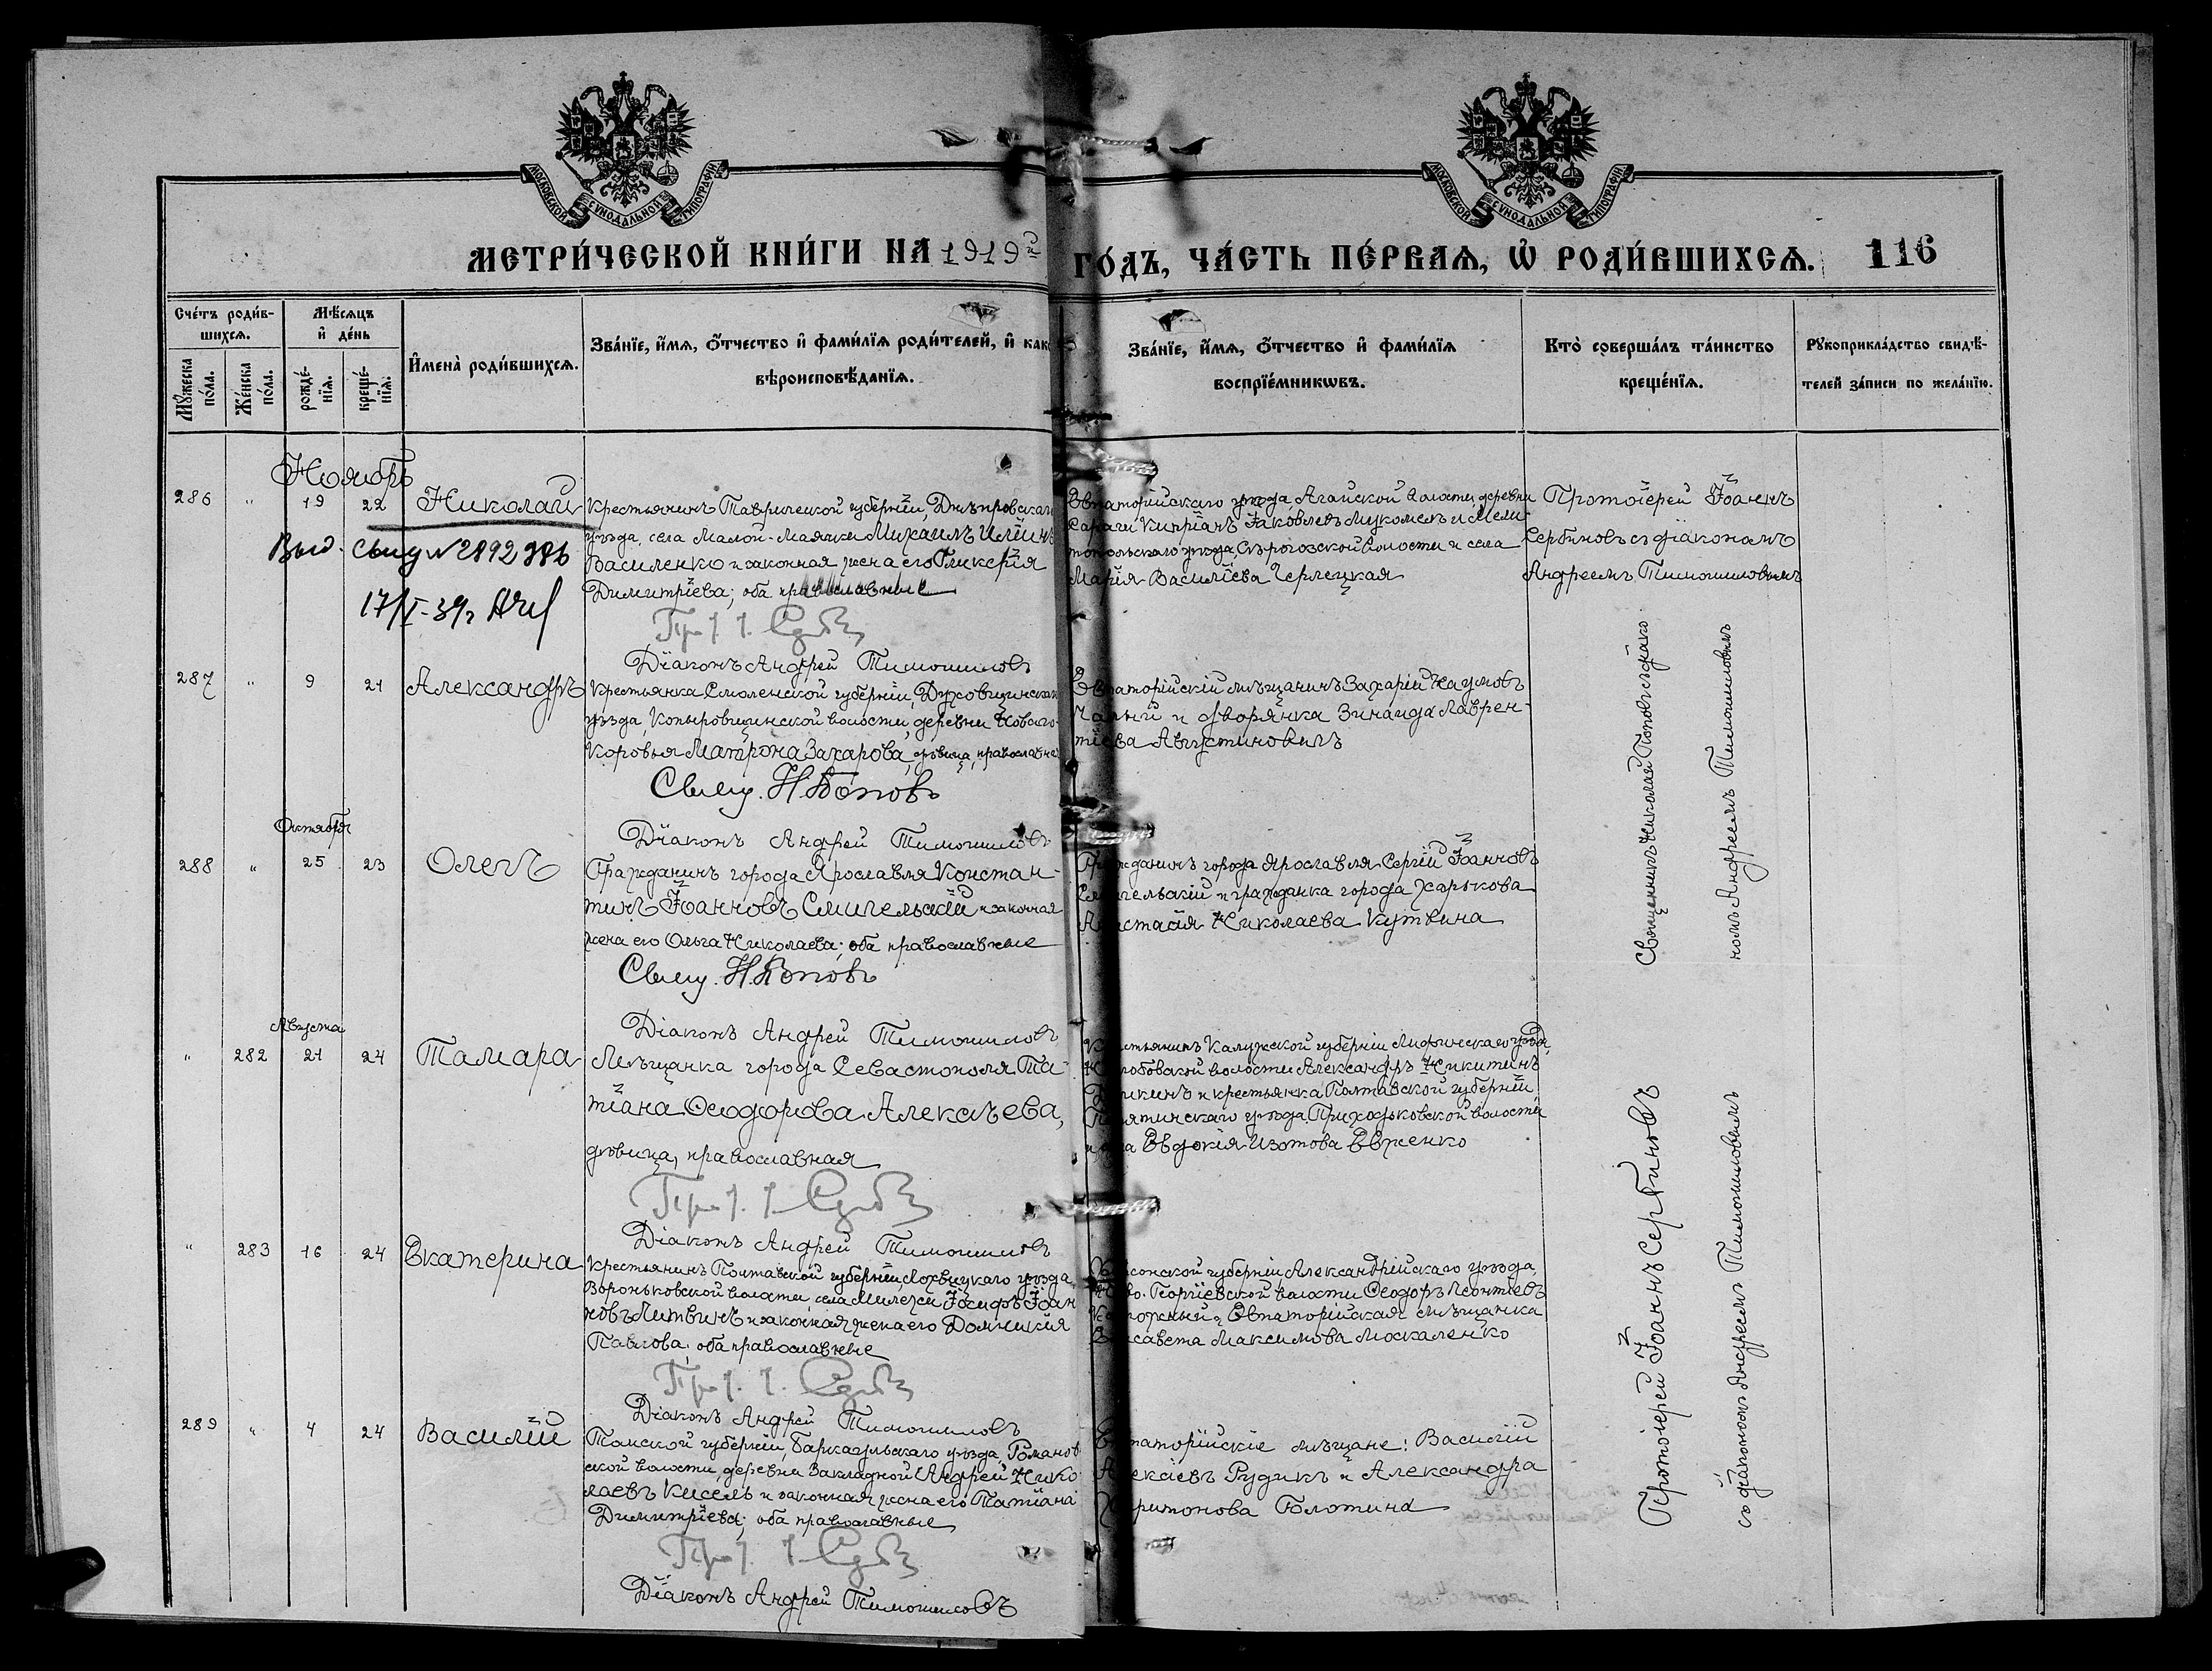 МОСКОВСКОЙ СУНОДАЛЬНОЙ ТИПОГРАФІИ
МОСКОВСКОЙ СУНОДАЛЬНОЙ ТИПОГРАФІИ
МЕТРИ́ЧЕСКОЙ КНИ́ГИ НА 1919й ГО́ДЪ, ЧА́СТЬ ПЕ́РВАѦ, Ѡ҆ РОДИ́ВШИХСѦ. 116
Сче́тъ роди́в-
шихсѧ.
Мꙋ́жеска по́ла.
Же́нска по́ла.
Мѣ́сѧцъ
и҆ де́нь
рожде́-
нїѧ.
креще́-
нїѧ.
И҆мена̀ роди́вшихсѧ.
Зва́нїе, и҆́мѧ, ѻ҆́тчество и҆ фами́лїѧ роди́телей, и҆ как
вѣроисповѣ́данїѧ.
Зва́нїе, и҆́мѧ, ѻ҆́тчество и҆ фами́лїѧ
воспрїе́мникѡвъ.
Кто̀ соверша́лъ та́инство
креще́нїѧ.
Рꙋкоприкла́дство свидѣ́-
телей за́писи по жела́нїю.
Ноябрь
286 " 19 22 Николай
Выд. свид N 2892
17/I-39г
Крестьянинъ Таврической губерніи, Днѣпровскаго
уѣзда, села Малой-Маячки Михаилъ Иліинъ
Василенко и законная жена его Гликерія
Димитріева; оба православные
Діаконъ Андрей Тимошиловъ
Евпаторійскаго уѣзда, Агайской волости, деревни
Кипріанъ Іаковлевъ Мукомелъ и Мели-
топольскаго уѣзда, Сѣрогозской волости и села
Марія Василіева Черлецкая
Протоіерей Іоаннъ
Сербиновъ съ діакономъ
Андреемъ Тимошиловымъ
287 " 9 21 Александръ
Крестьянка Смоленской губерніи, Духовщинскаго
уѣзда, Копыровщинской волости, деревни Новаго-
Коровья Матрона Захарова, дѣвица, православная
Свящ. Н. Поповъ
Діаконъ Андрей Тимошиловъ
Евпаторійскій мѣщанинъ Захарій Наумовъ
Чалый и дворянка Зинаида Лаврен-
тіева Августиновичъ
Священникъ Николай Поповъ съ діако
номъ Андреемъ Тимошиловымъ
Октября
288 " 25 23 Олегъ
Гражданинъ города Ярославля Констан-
тинъ Іоанновъ Смигельскій и законная
жена его Ольга Николаева; оба православные
Свящ. Н. Поповъ
Діаконъ Андрей Тимошиловъ
Гражданинъ города Ярославля Сергій Іоанновъ
Смигельскій и гражданка города Харькова
Анастасія Николаева Кутвина
Августа
" 282 21 24 Тамара
Мѣщанка города Севастополя Та-
тіана Ѳеодорова Алексѣева,
дѣвица, православная
Діаконъ Андрей Тимошиловъ
Крестьянинъ Калужской губерніи
волости Александръ Никитинъ
и крестьянка Полтавской губерніи,
Пирятинскаго уѣзда, Приходьковской волости
Евдокія Изотова Евженко
" 283 16 24 Екатерина
Крестьянинъ Полтавской губерніи, Лохвицкаго уѣзда,
Вороньковской волости, села Мелехи Іосифъ Іоан
новъ Литвинъ и законная жена его Домникія
Павлова; оба православные
Діаконъ Андрей Тимошиловъ
Херсонской губерніи Александрійскаго уѣзда,
Ново-Георгіевской волости Ѳеодоръ Леонтіевъ
и Евпаторійская мѣщанка
Елисавета Максимова Москаленко
Протоіерей Іоаннъ Сербиновъ
съ діакономъ Андреемъ Тимошиловымъ
289 " 4 24 Василій
Томской губерніи, Барнаульскаго уѣзда, Романов
ской волости, деревни Закладной Андрей Нико
лаевъ Кисель и законная жена его Татіана
Димитріева; оба православные
Діаконъ Андрей Тимошиловъ
Евпаторійскіе мѣщане: Василій
Алексіевъ Рудикъ и Александра
Харитонова Болотина